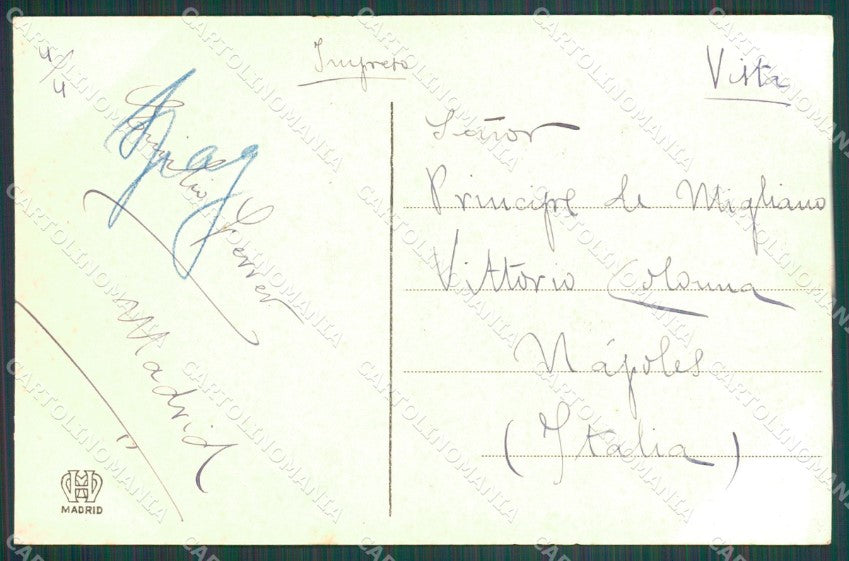 4/4
Impreso
Vista
Señor
Principe de Migliano
Vittorio Colonna
Nápoles
(Italia)
Emilio Ferrer
Madrid
MADRID
CARTOLINOMANIA